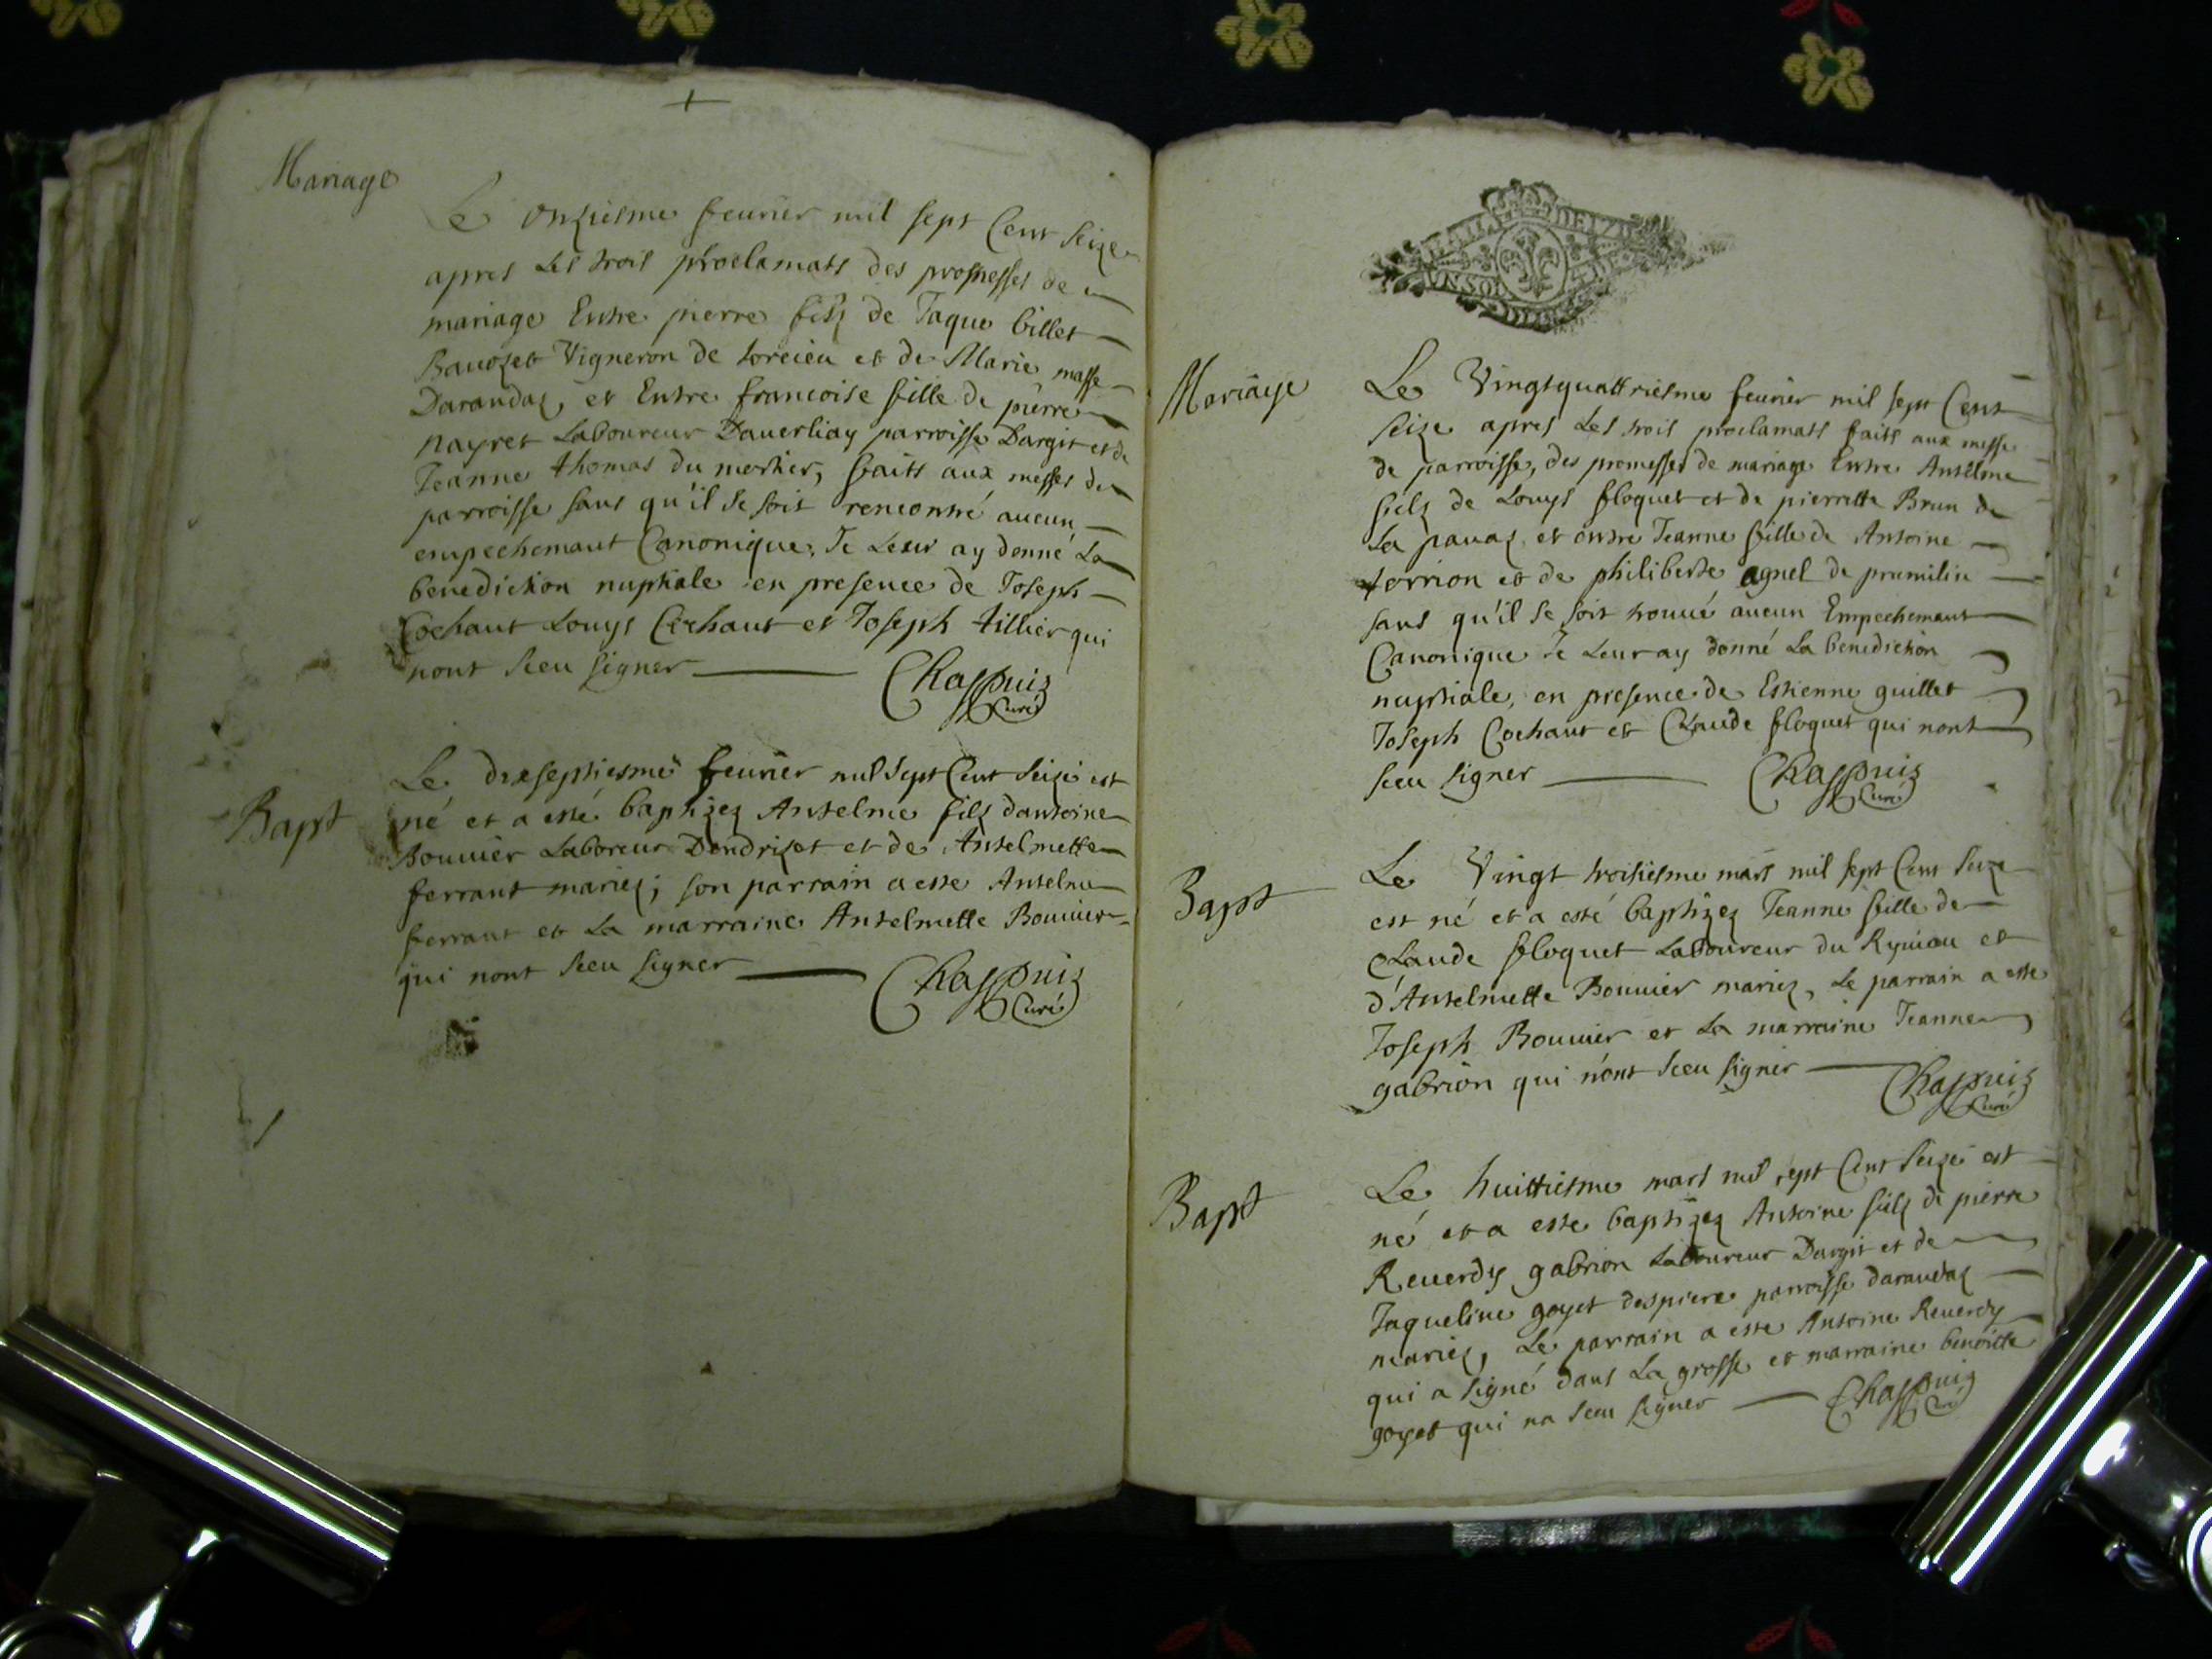 Mariage
Le onziesme feurier mil sept Cent seize
apres les trois proclamats des promesses de
mariage Entre pierre filz de Jaque billet
Bauozet Vigneron de torcieu et de Marie masse
Darandaz, et Entre francoise fille de pierre
nayret Laboureur Dauerliaz parroisse Dargit et de
Jeanne thomas du mortier, faitts aux messes de
parroisse sans qu'il se soit rencontré aucun
empechemant Canonique, Je Leur ay donné La
benediction nuptiale en presence de Joseph
Cochaut Louys Cochaut et Joseph tillier qui
nont sceu signer Chappuiz
Curé
Bapt
Le dixseptiesme feurier mil sept Cent seize est
né et a esté baptizez Antelme filz dantoine
Bouuier Laboreur Dondrizet et de Antelmette
ferrant mariez; son parrain a esté Antelme
ferrant et La marraine Antelmette Bouuier
qui nont sceu signer Chappuiz
Curé
UN SOL
Mariage
Le Vingtquattriesme feurier mil sept Cent
seize apres Les trois proclamats faits aux messe
de parroisse, des promesses de mariage Entre Antelme
filz de Louys floquet et de pierrette Brun de
La pauaz et entre Jeanne fille de Antoine
torrion et de philiberte agnel de prumilin
sans qu'il se soit trouué aucun Empechemant
Canonique Je Leur ay donné La benediction
nuptiale, en presence de Estienne guillet
Joseph Cochaut et Claude floquet qui nont
sceu signer Chappuiz
Curé
Bapt
Le Vingt troisiesme mars mil sept Cent seize
est né et a esté baptizez Jeanne fille de
Claude floquet Laboureur du et
d'Antelmette Bouuier mariez, Le parrain a esté
Joseph Bouuier et La marraine Jeanne
gabrion qui n'ont sceu signer Chappuiz
Curé
Bapt
Le huittiesme mars mil sept Cent seize est
né et a esté baptizez Antoine filz de pierre
Reuerdy gabrion Laboureur Dargit et de
Jaqueline goyet despiere parroisse darandaz
mariez, Le parrain a esté Antoine Reuerdy
qui a signé dans La grosse et marraine benoitte
goyet qui na sceu signer Chappuiz
Curé